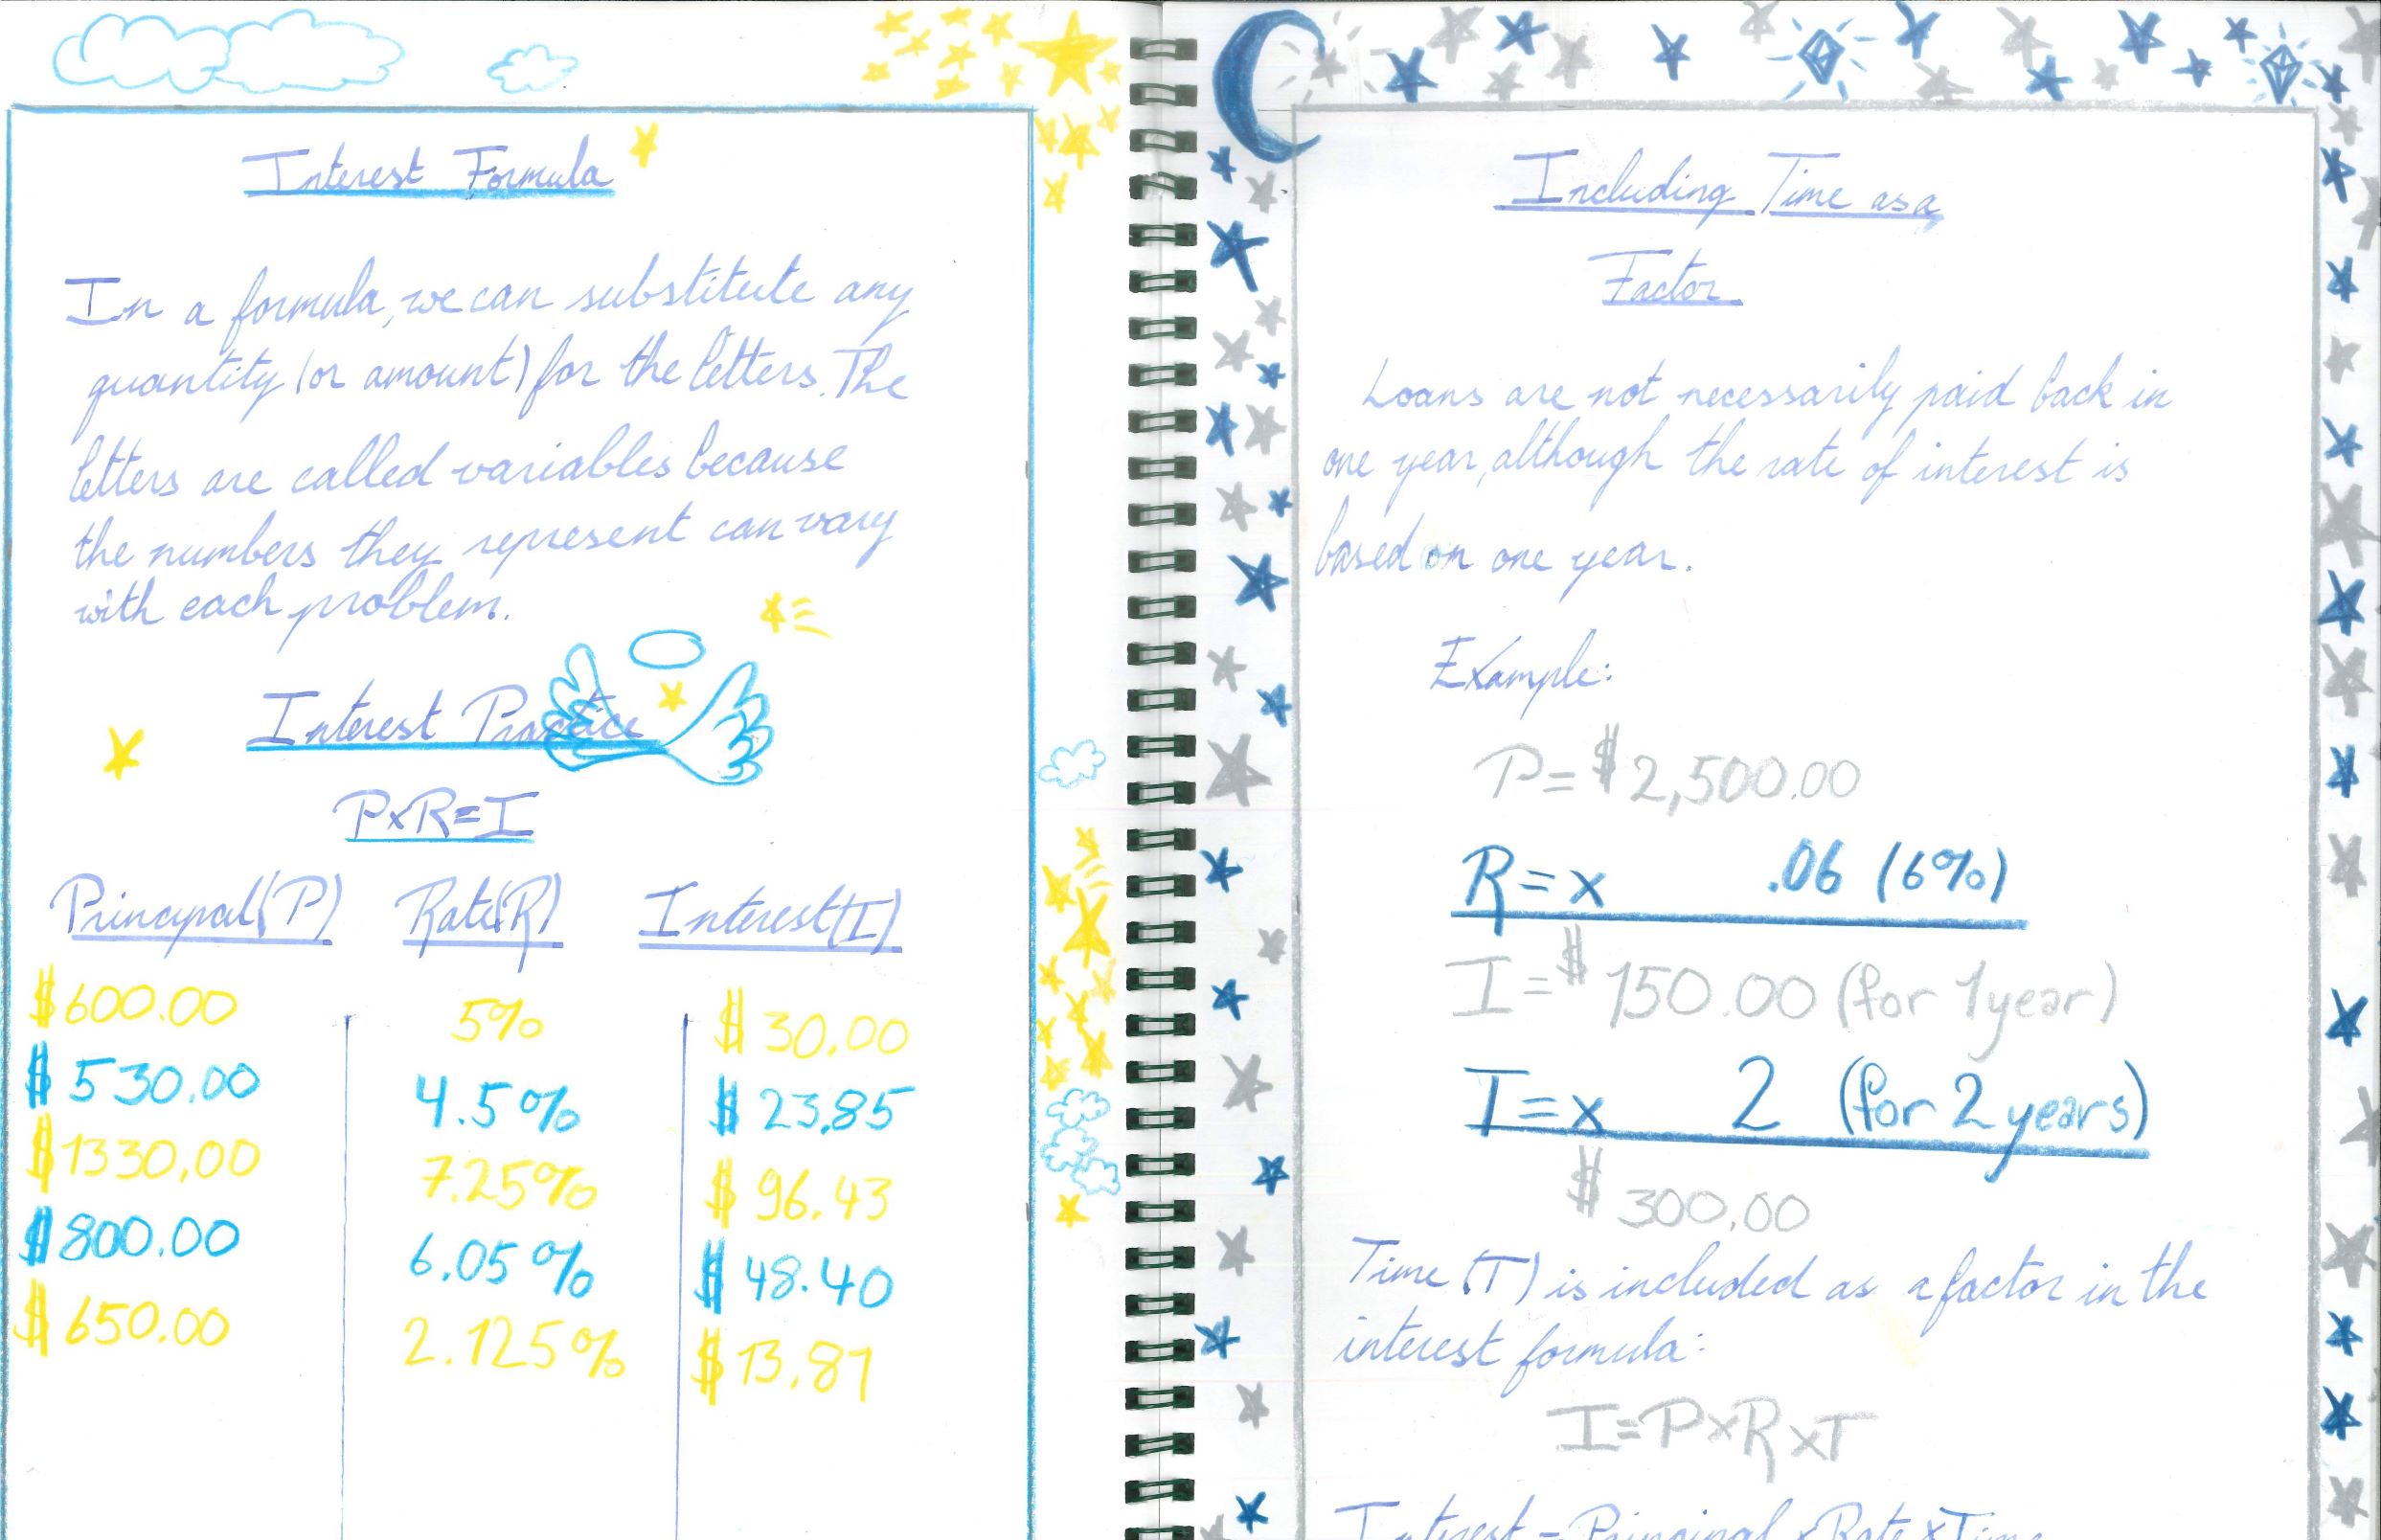 Interest Formula
In a formula, we can substitute any
quantity (or amount) for the letters. The
letters are called variables because
the numbers they represent can vary
with each problem.
Interest Practice
PxR=I
Principal(P) Rate(R) Interest(I)
$600.00 5% $30.00
$530.00 4.5% $23.85
$1330.00 7.25% $96.43
$800.00 6.05% $48.40
$650.00 2.125% $13.81
Including Time as a
Factor
Loans are not necessarily paid back in
one year, although the rate of interest is
based on one year.
Example:
P=$2,500.00
R=x .06 (6%)
I=$150.00 (for 1 year)
I=x 2 (for 2 years)
$300.00
Time (T) is included as a factor in the
interest formula:
I=PxRxT
Interest = Principal x Rate x Time